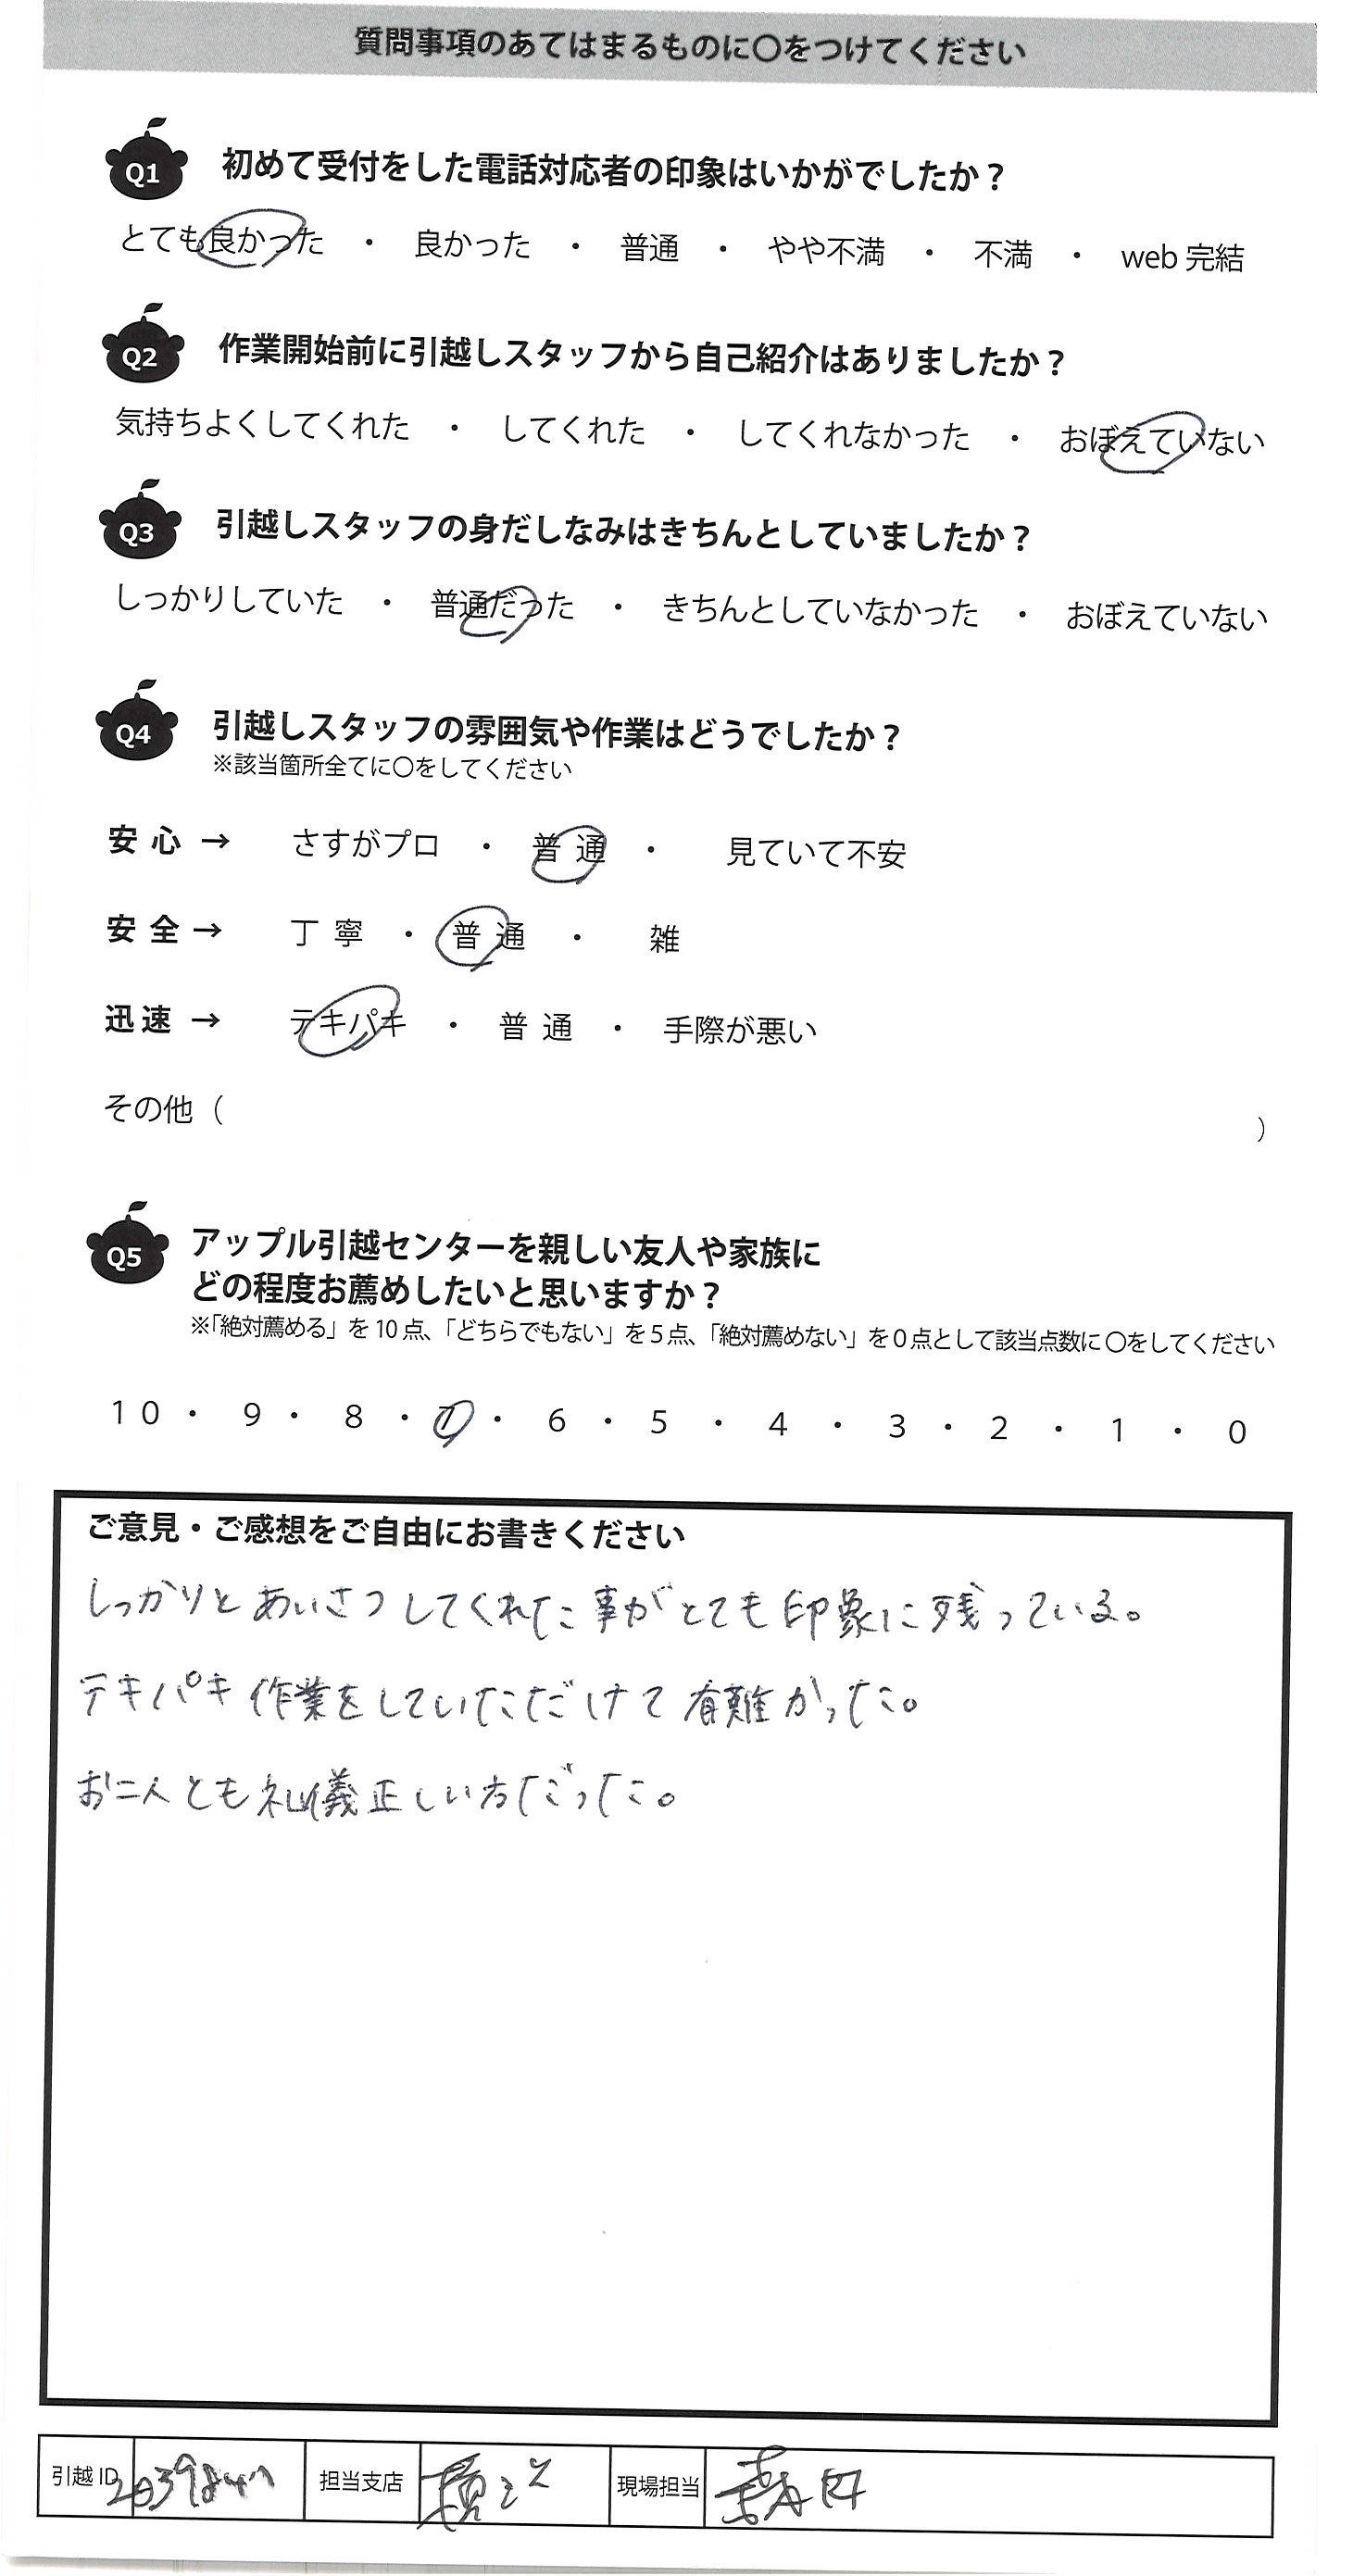 質問事項のあてはまるものに〇をつけてください
Q1 初めて受付をした電話対応者の印象はいかがでしたか？
とても良かった ・ 良かった ・ 普通 ・ やや不満 ・ 不満 ・ web 完結
Q2 作業開始前に引越しスタッフから自己紹介はありましたか？
気持ちよくしてくれた ・ してくれた ・ してくれなかった ・ おぼえていない
Q3 引越しスタッフの身だしなみはきちんとしていましたか？
しっかりしていた ・ 普通だった ・ きちんとしていなかった ・ おぼえていない
Q4 引越しスタッフの雰囲気や作業はどうでしたか？
※該当箇所全てに〇をしてください
安心 → さすがプロ ・ 普通 ・ 見ていて不安
安全 → 丁寧 ・ 普通 ・ 雑
迅速 → テキパキ ・ 普通 ・ 手際が悪い
その他（ ）
Q5 アップル引越センターを親しい友人や家族に
どの程度お薦めしたいと思いますか？
※「絶対薦める」を10点、「どちらでもない」を5点、「絶対薦めない」を0点として該当点数に〇をしてください
10 ・ 9 ・ 8 ・ 7 ・ 6 ・ 5 ・ 4 ・ 3 ・ 2 ・ 1 ・ 0
ご意見・ご感想をご自由にお書きください
しっかりとあいさつしてくれた事がとても印象に残っている。
テキパキ作業をしていただけて有難かった。
お二人とも礼儀正しい方だった。
引越ID 担当支店 現場担当